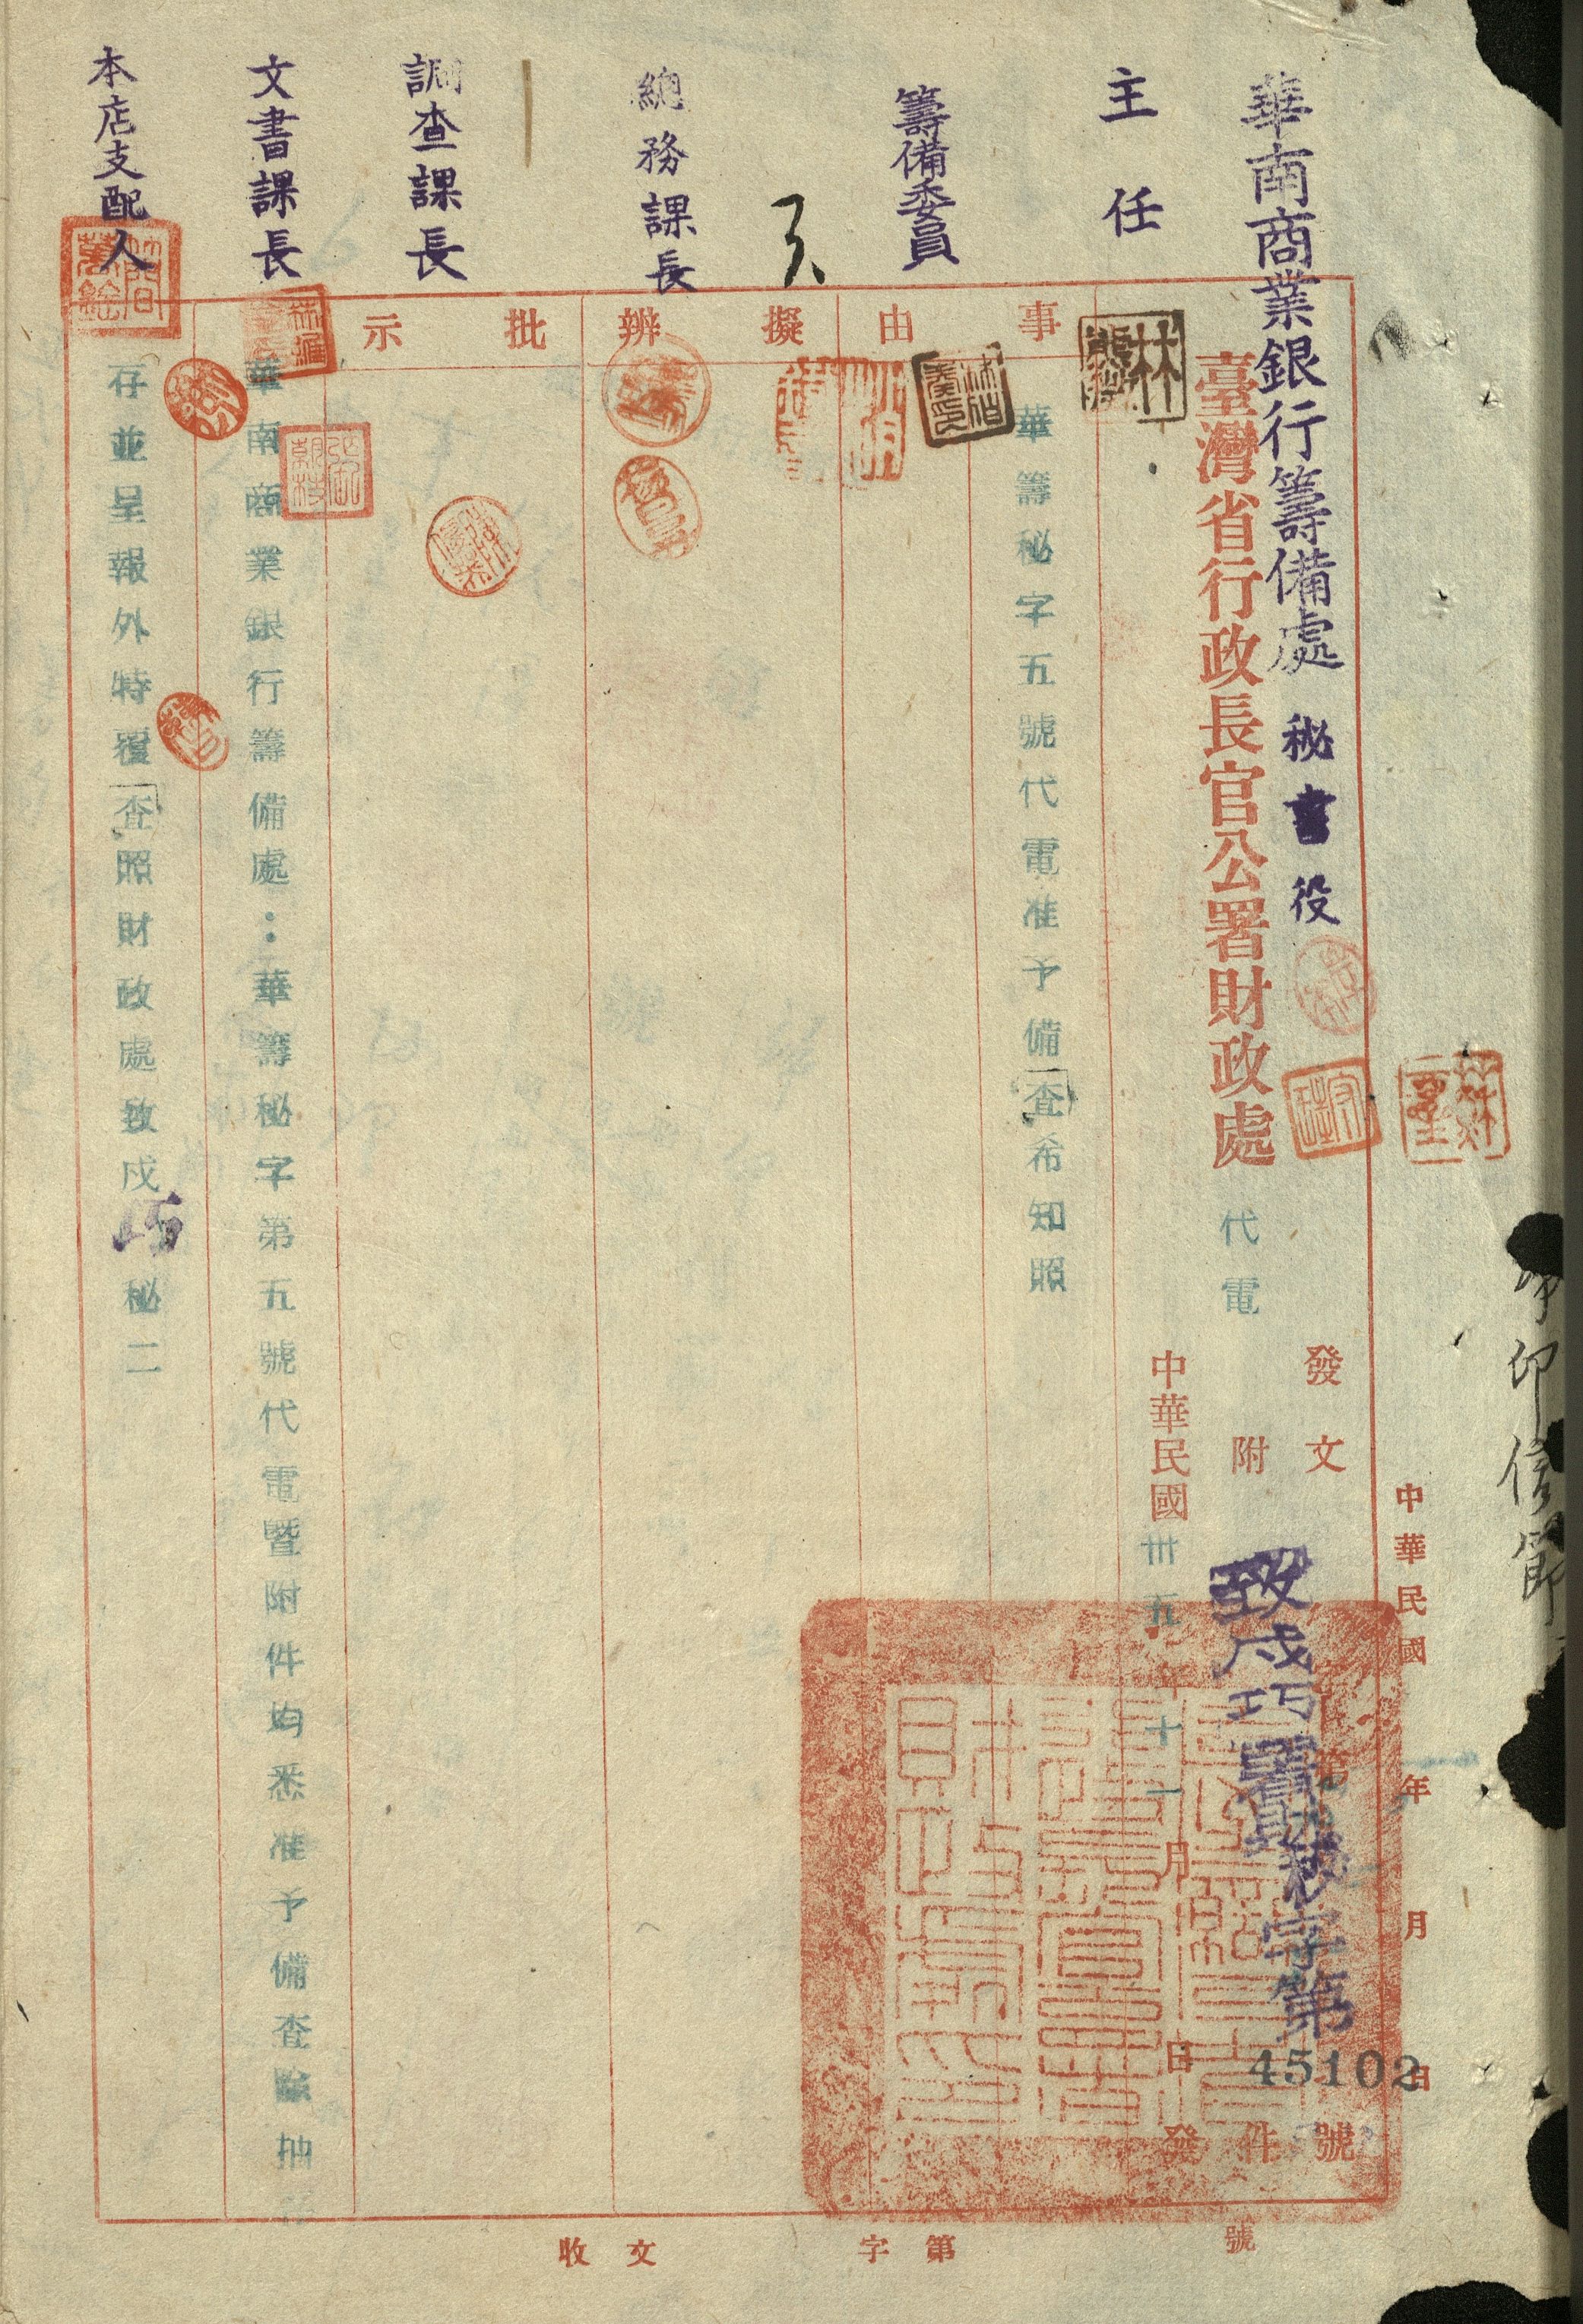 華南商業銀行籌備處 秘書役
主任
籌備委員
總務課長
調查課長
文書課長
本店支配人
臺灣省行政長官公署財政處 代電
發文 字第 號
致戌巧署財秘字第
45102
附 件
中華民國卅五年十一月 日發
中華民國 年 月 日
事由
擬辦
批示
華籌秘字五號代電准予備查希知照
華南商業銀行籌備處：華籌秘字第五號代電暨附件均悉准予備查除抽
存並呈報外特覆查照財政處致戌巧秘二
收文 字第 號
印信